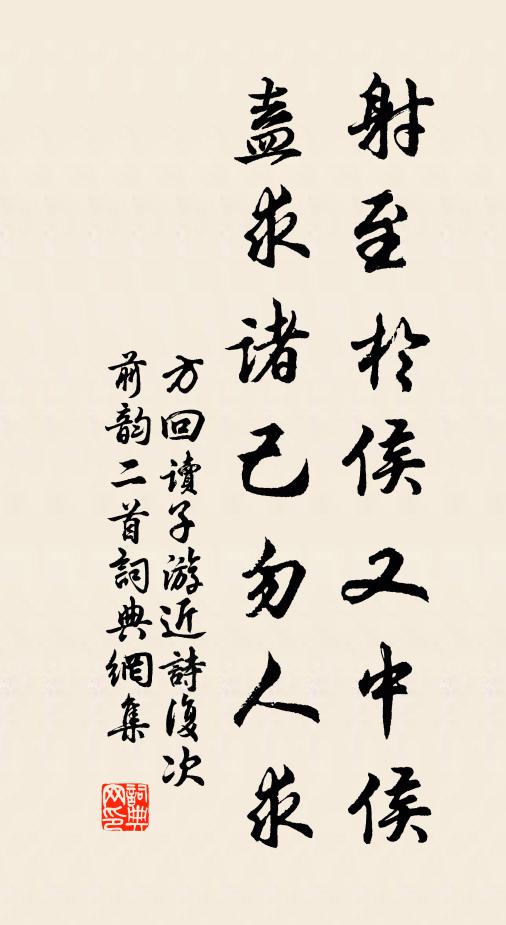 射至於侯又中侯
盍求诸己勿人求
方回讀子游近詩復次
前韵二首詞典網集
詞典网印